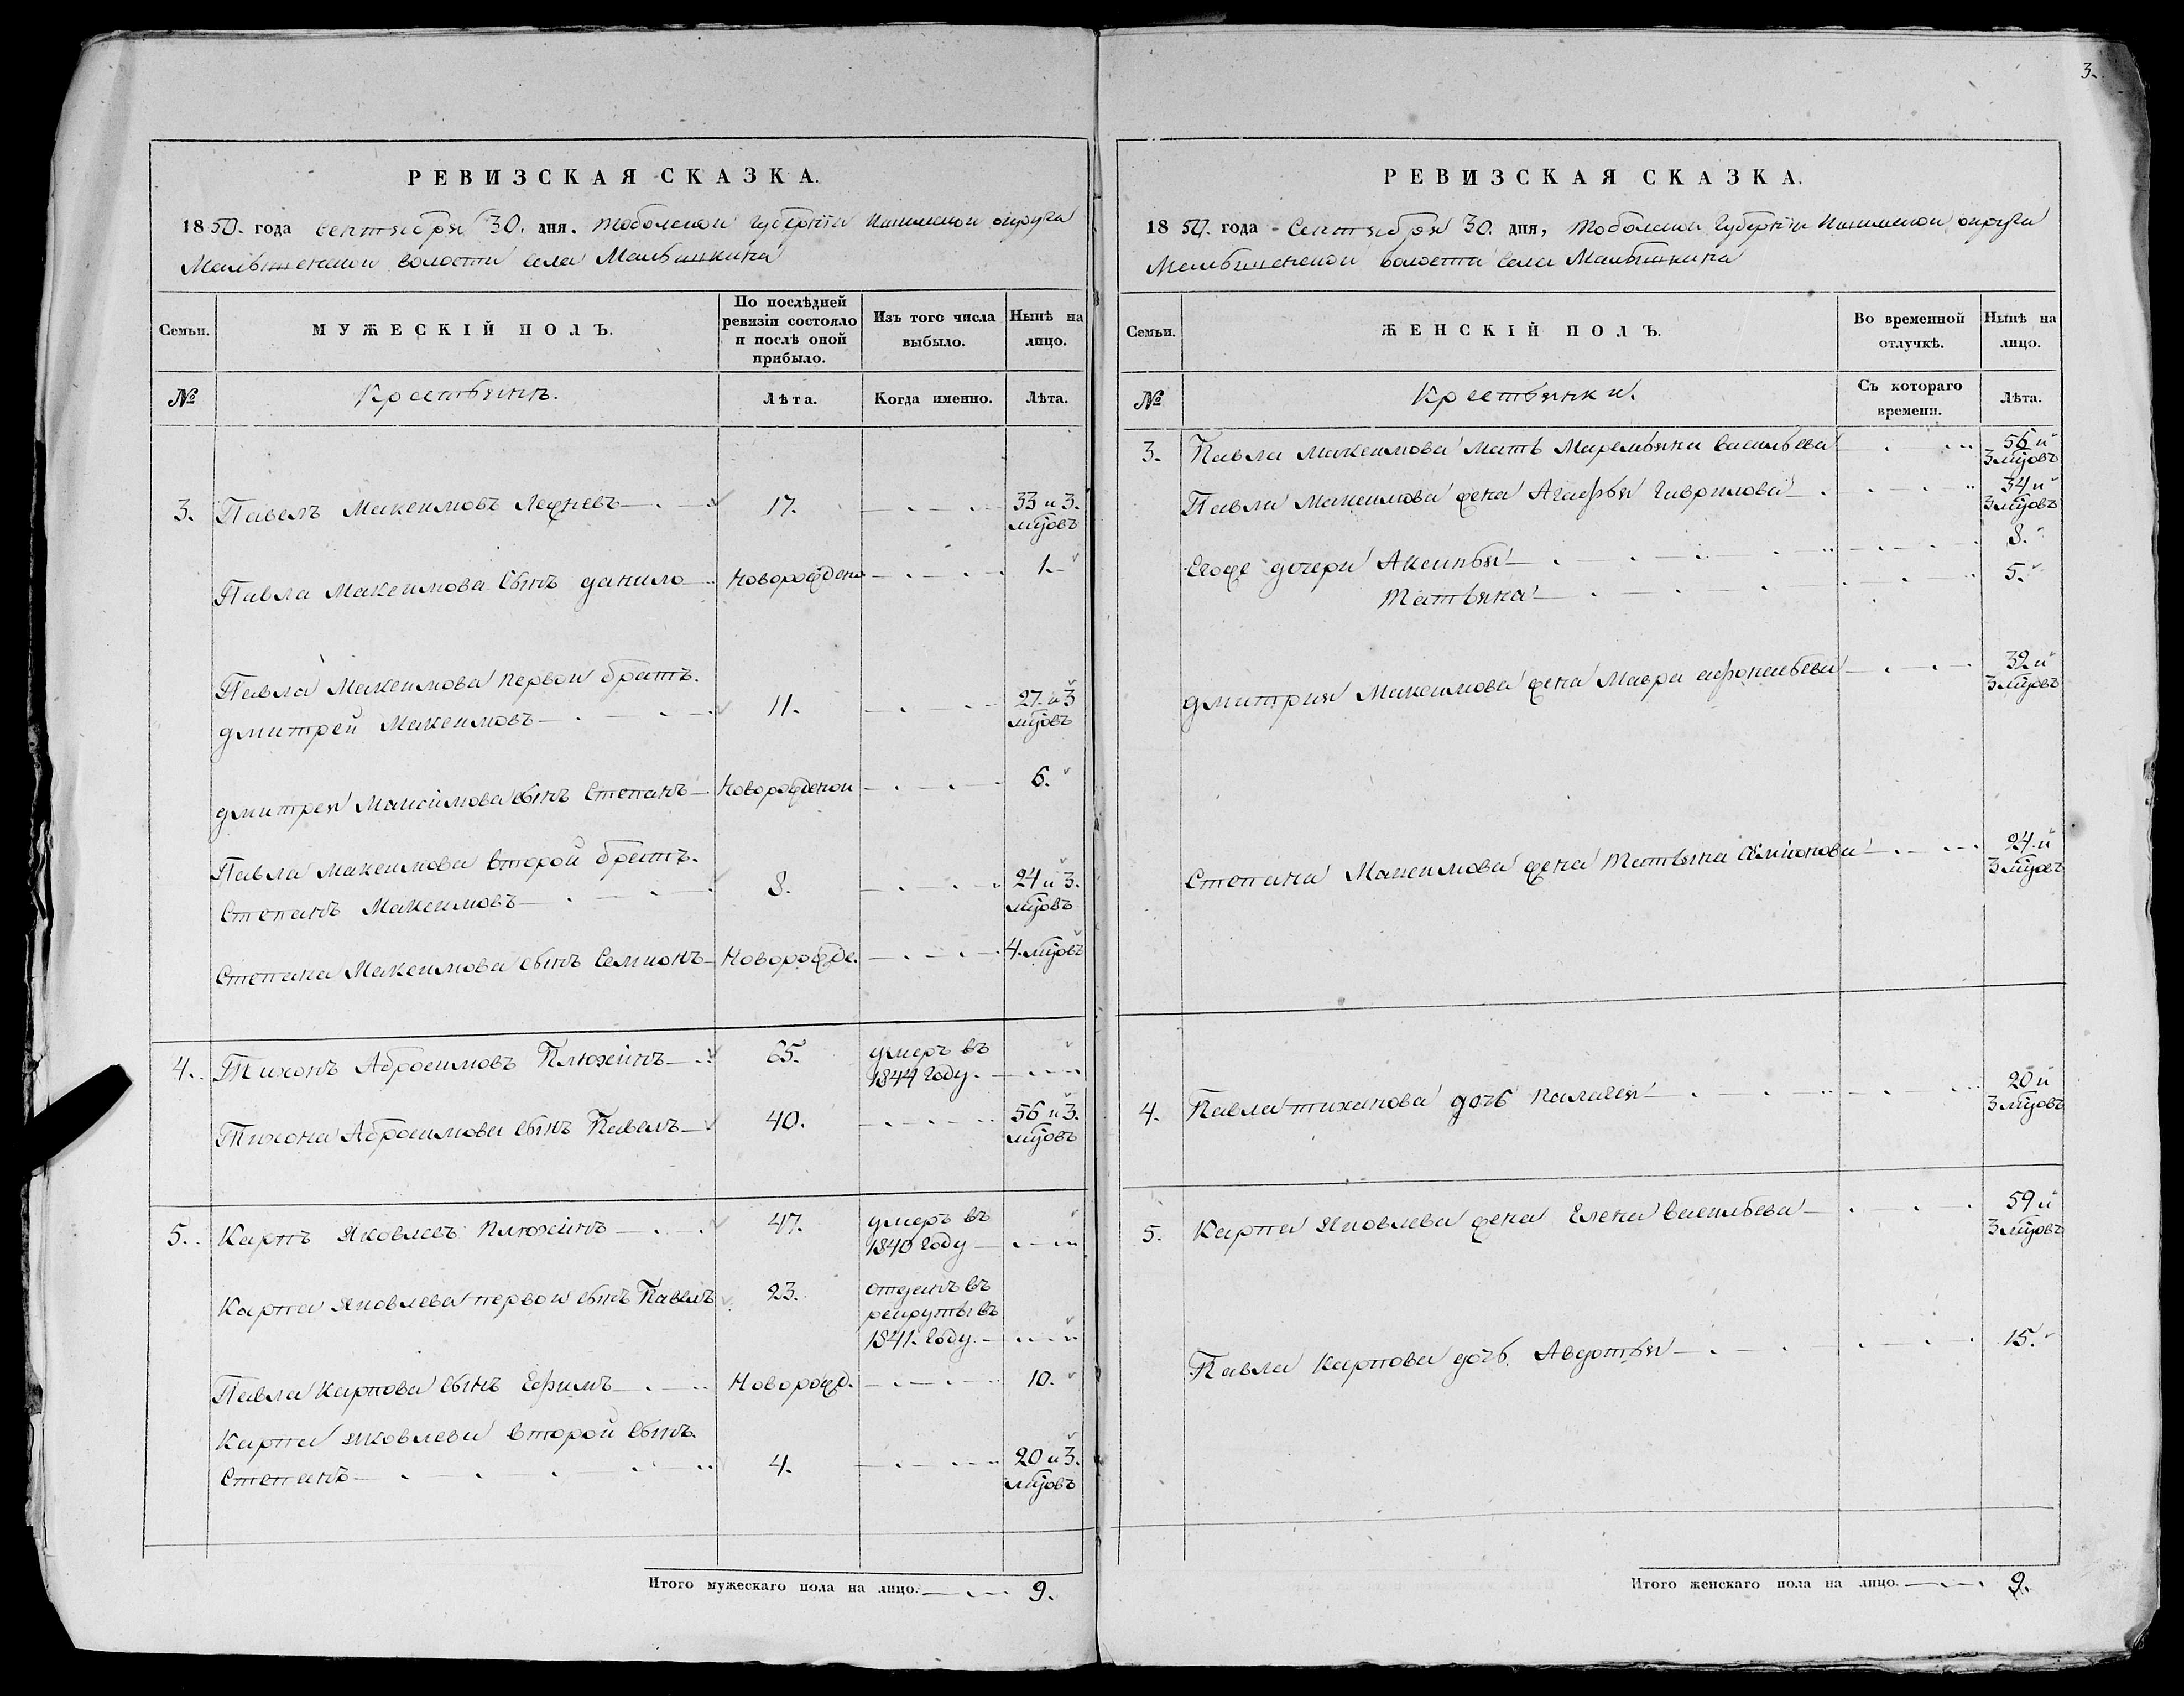 РЕВИЗСКАЯ СКАЗКА.
1850. года сентября 30. дня. Тобольской Губернии Ишимской округи
Малышенской волости села Малышкина
Семьи. МУЖЕСКІЙ ПОЛЪ. По послѣдней ревизіи состояло и послѣ оной прибыло. Изъ того числа выбыло. Нынѣ на лицо.
№ Крестьянъ. Лѣта. Когда именно. Лѣта.
3. Павелъ Максимовъ 17. 33 и 3.
мцовъ
Павла Максимова сынъ данило Новорождено 1.
Павла Максимова первой братъ.
дмитрей Максимовъ 11. 27. и 3
мцовъ
дмитрея Максимова сынъ Степанъ Новорожденой 6.
Павла Максимова второй братъ.
Степанъ Максимовъ 8. 24 и 3.
мцовъ
Степана Максимова сынъ Семионъ Новорожде. 4. мцовъ
4. Тихонъ Абросимовъ Плюхинъ 65. умеръ въ
1844 году.
Тихона Абросимова сынъ Павелъ 40. 56 и 3.
мцовъ
5. Карпъ Яковлевъ Плюхинъ 47. умеръ въ
1840 году
Карпа Яковлева первой сынъ Павелъ 23. отданъ въ
рекруты въ
1841. году.
Павла Карпова сынъ Ефимъ Новорожд. 10.
Карпа яковлева второй сынъ
Степанъ 4. 20 и 3.
мцовъ
Итого мужескаго пола на лицо. 9.
3.
РЕВИЗСКАЯ СКАЗКА.
1850. года Сентября 30. дня, Тобольской Губернии Ишимской округи
Малышенской волости села Малышкина
Семьи. ЖЕНСКІЙ ПОЛЪ. Во временной отлучкѣ. Нынѣ на лицо.
№ Крестьянки. Съ котораго времени. Лѣта.
3. Павла Максимова мать Маремьяна васильева 56 и
3 мцовъ
Павла Максимова жена Агафья гаврилова 34 и
3 мцовъ
Егоже дочери Аксинья 8.
Татьяна 5.
дмитрия Максимова жена Мавра афонасьева 32 и
3 мцовъ
Степана Максимова жена Татьяна семионова 24. и
3 мцовъ
4. Павла тихонова дочь палагея 20 и
3 мцовъ
5. Карпа Яковлева жена Елена васильева 59 и
3 мцовъ
Павла Карпова дочь. Авдотья 15.
Итого женскаго пола на лицо. 9.